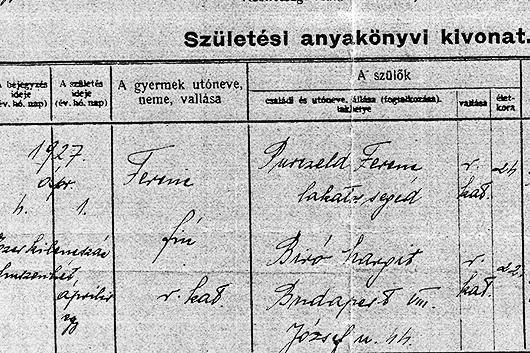 Születési anyakönyvi kivonat.
A bejegyzés ideje (év. hó. nap)
A születés ideje (év. hó. nap)
A gyermek utóneve, neme, vallása
A szülők
családi és utóneve, állása (foglalkozása), lakhelye
vallása
életkora
1927.
ápr.
4. 1.
április
Ferenc
fiú
r. kat.
Purczeld Ferenc
lakatos segéd
r. kat.
24
Biró Margit
Budapest VIII.
József u. 44.
r. kat.
22.